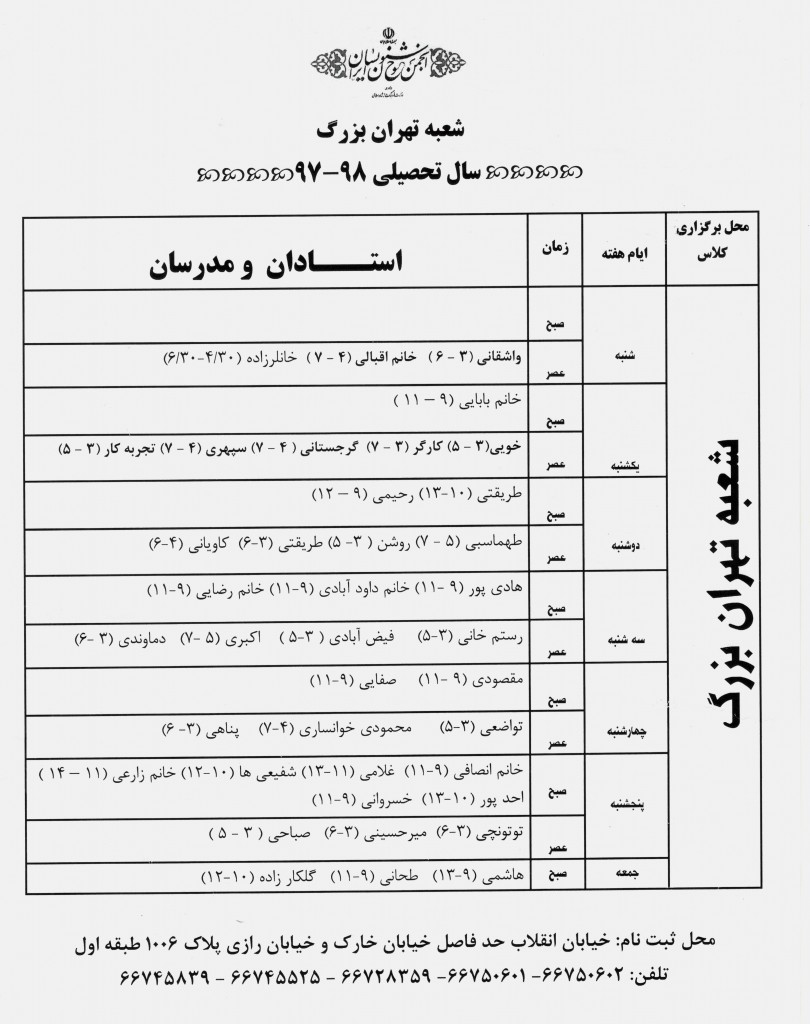 انجمن خوشنویسان ایران
شعبه تهران بزرگ
سال تحصیلی ۹۸-۹۷
محل برگزاری کلاس
ایام هفته
زمان
استـــــادان و مدرسان
شعبه تهران بزرگ
شنبه
صبح
عصر
واشقانی (۳ - ۶) خانم اقبالی (۴ - ۷) خانلرزاده (۴/۳۰-۶/۳۰)
یکشنبه
صبح
خانم بابایی (۹ – ۱۱)
عصر
خویی(۳ - ۵) کارگر (۳ - ۷) گرجستانی (۴ - ۷) سپهری (۴ - ۷) تجربه کار (۳ - ۵)
دوشنبه
صبح
طریقتی (۱۰-۱۳) رحیمی (۹ – ۱۲)
عصر
طهماسبی (۵ - ۷) روشن (۳ - ۵) طریقتی (۳-۶) کاویانی (۴-۶)
سه شنبه
صبح
هادی پور (۹ -۱۱) خانم داود آبادی (۹-۱۱) خانم رضایی (۹-۱۱)
عصر
رستم خانی (۳-۵) فیض آبادی (۳ -۵) اکبری (۵ -۷) دماوندی (۳ -۶)
چهارشنبه
صبح
مقصودی (۹ -۱۱) صفایی (۹-۱۱)
عصر
تواضعی (۳-۵) محمودی خوانساری (۴-۷) پناهی (۳- ۶)
پنجشنبه
صبح
خانم انصافی (۹-۱۱) غلامی (۱۱-۱۳) شفیعی ها (۱۰-۱۲) خانم زارعی (۱۱ – ۱۴)
احد پور (۱۰-۱۳) خسروانی (۹-۱۱)
عصر
توتونچی (۳-۶) میرحسینی (۳-۶) صباحی (۳ - ۵)
جمعه
صبح
هاشمی (۹-۱۳) طحانی (۹-۱۱) گلکار زاده (۱۰-۱۲)
محل ثبت نام: خیابان انقلاب حد فاصل خیابان خارک و خیابان رازی پلاک ۱۰۰۶ طبقه اول
تلفن: ۶۶۷۵۰۶۰۲- ۶۶۷۵۰۶۰۱- ۶۶۷۲۸۳۵۹ - ۶۶۷۴۵۵۲۵ - ۶۶۷۴۵۸۳۹